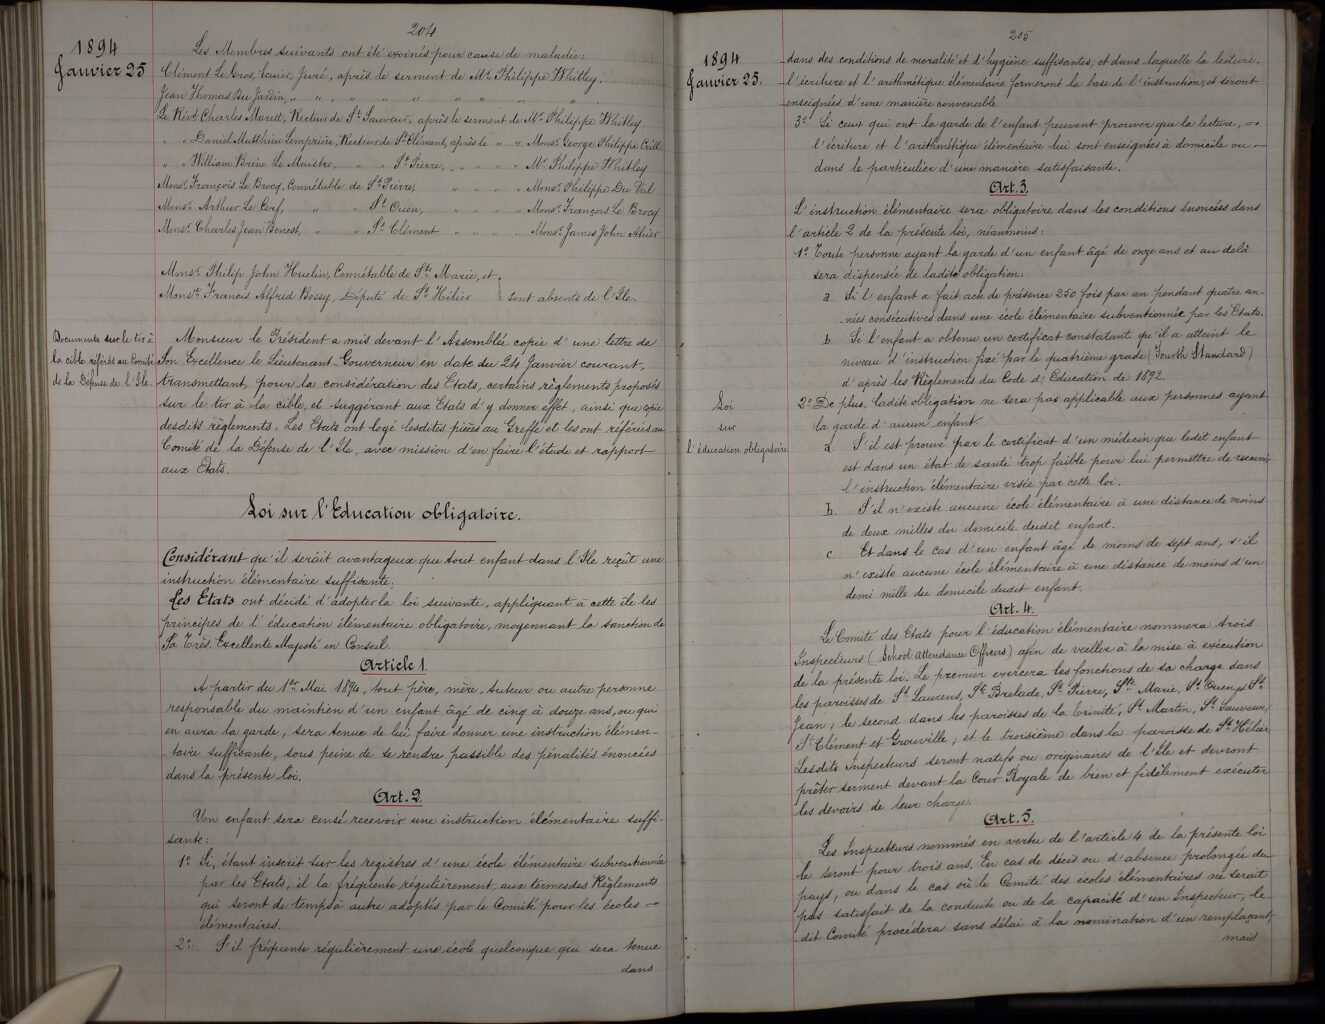 204
1894
Janvier 25
Les Membres suivants ont été exoinés pour cause de maladie:
Clément Le Gros, Ecuier, Juré, après le serment de Mr. Philippe Whitley.
Jean Thomas Du Jardin, " " " " " " " " "
Le Révd. Charles Marett, Recteur de St. Sauveur, après le serment de Mr. Philippe Whitley
" " Daniel Matthieu Lemprière, Recteur de St. Clément, après le " " Monsr. George Philippe
" " William Brine Le Maistre, " " St. Pierre, " " " " Mr. Philippe Whitley
Monsr. François Le Brocq, Connétable de St. Pierre, " " " " Monsr. Philippe Du Val
Monsr. Arthur Le Cerf, " " St. Ouën, " " " " Monsr. François Le Brocq
Monsr. Charles Jean Benest, " " St. Clément " " " " Monsr. James John Ahier
Monsr. Philip John Huelin, Connétable de Ste. Marie, et
Monsr. Francis Alfred Bossy, Député de St. Hélier } sont absents de l'Ile.
Documents sur le tir à
la cible référés au Comité
de la Défense de l'Ile.
Monsieur le Président a mis devant l'Assemblée copie d'une lettre de
Son Excellence le Lieutenant-Gouverneur en date du 24 Janvier courant,
transmettant, pour la considération des Etats, certains règlements proposés
sur le tir à la cible, et suggérant aux Etats d'y donner effet, ainsi que copie
desdits règlements. Les Etats ont logé lesdites pièces au Greffe et les ont référés au
Comité de la Défense de l'Ile, avec mission d'en faire l'étude et rapport
aux Etats.
Loi sur l'Education obligatoire.
Considérant qu'il serait avantageux que tout enfant dans l'Ile reçût une
instruction élémentaire suffisante;
Les Etats ont décidé d'adopter la loi suivante, appliquant à cette île les
principes de l'éducation élémentaire obligatoire, moyennant la sanction de
Sa Très Excellente Majesté en Conseil.
Article 1.
A partir du 1er Mai 1894, tout père, mère, tuteur ou autre personne
responsable du maintien d'un enfant âgé de cinq à douze ans, ou qui
en aura la garde, sera tenue de lui faire donner une instruction élémen-
taire suffisante, sous peine de se rendre passible des pénalités énoncées
dans la présente Loi.
Art. 2.
Un enfant sera censé recevoir une instruction élémentaire suffi-
sante:
1o Si, étant inscrit sur les registres d'une école élémentaire subventionnée
par les Etats, il la fréquente régulièrement, aux termes des Règlements
qui seront de temps à autre adoptés par le Comité pour les écoles
élémentaires.
2o S'il fréquente régulièrement une école quelconque qui sera tenue
dans
205
1894
Janvier 25.
dans des conditions de moralité et d'hygiène suffisantes, et dans laquelle la lecture,
l'écriture et l'arithmétique élémentaire formeront la base de l'instruction, et seront
enseignées d'une manière convenable
3o Si ceux qui ont la garde de l'enfant peuvent prouver que la lecture,
l'écriture et l'arithmétique élémentaire lui sont enseignées à domicile ou
dans le particulier d'une manière satisfaisante.
Art. 3.
L'instruction élémentaire sera obligatoire dans les conditions énoncées dans
l'article 2 de la présente loi, néanmoins:
1o Toute personne ayant la garde d'un enfant âgé de onze ans et au delà
sera dispensée de ladite obligation:
a. Si l'enfant a fait acte de présence 250 fois par an pendant quatre an-
nées consécutives dans une école élémentaire subventionnée par les Etats.
b Si l'enfant a obtenu un certificat constatant qu'il a atteint le
niveau d'instruction fixé par le quatrième grade (Fourth Standard)
d'après les Règlements du Code d'Education de 1892.
Loi
sur
l'éducation obligatoire
2o De plus, ladite obligation ne sera pas applicable aux personnes ayant
la garde d'aucun enfant:
a. S'il est prouvé par le certificat d'un médecin que ledit enfant
est dans un état de santé trop faible pour lui permettre de recevoir
l'instruction élémentaire visée par cette loi.
b. S'il n'existe aucune école élémentaire à une distance de moins
de deux milles du domicile dudit enfant.
c. Et dans le cas d'un enfant âgé de moins de sept ans, s'il
n'existe aucune école élémentaire à une distance de moins d'un
demi mille du domicile dudit enfant.
Art. 4.
Le Comité des Etats pour l'éducation élémentaire nommera trois
Inspecteurs (School Attendance Officers) afin de veiller à la mise à exécution
de la présente loi. Le premier exercera les fonctions de sa charge dans
les paroisses de St. Laurens, St. Brelade, St. Pierre, Ste. Marie, St. Ouen et St.
Jean; le second dans les paroisses de la Trinité, St. Martin, St. Sauveur,
St. Clément et Grouville; et le troisième dans la paroisse de St. Hélier.
Lesdits Inspecteurs seront natifs ou originaires de l'Ile et devront
prêter serment devant la Cour Royale de bien et fidèlement exécuter
les devoirs de leur charge.
Art. 5.
Les Inspecteurs nommés en vertu de l'article 4 de la présente loi
le seront pour trois ans. En cas de décès ou d'absence prolongée du
pays, ou dans le cas où le Comité des écoles élémentaires ne serait
pas satisfait de la conduite ou de la capacité d'un Inspecteur, le-
dit Comité procédera sans délai à la nomination d'un remplaçant;
mais